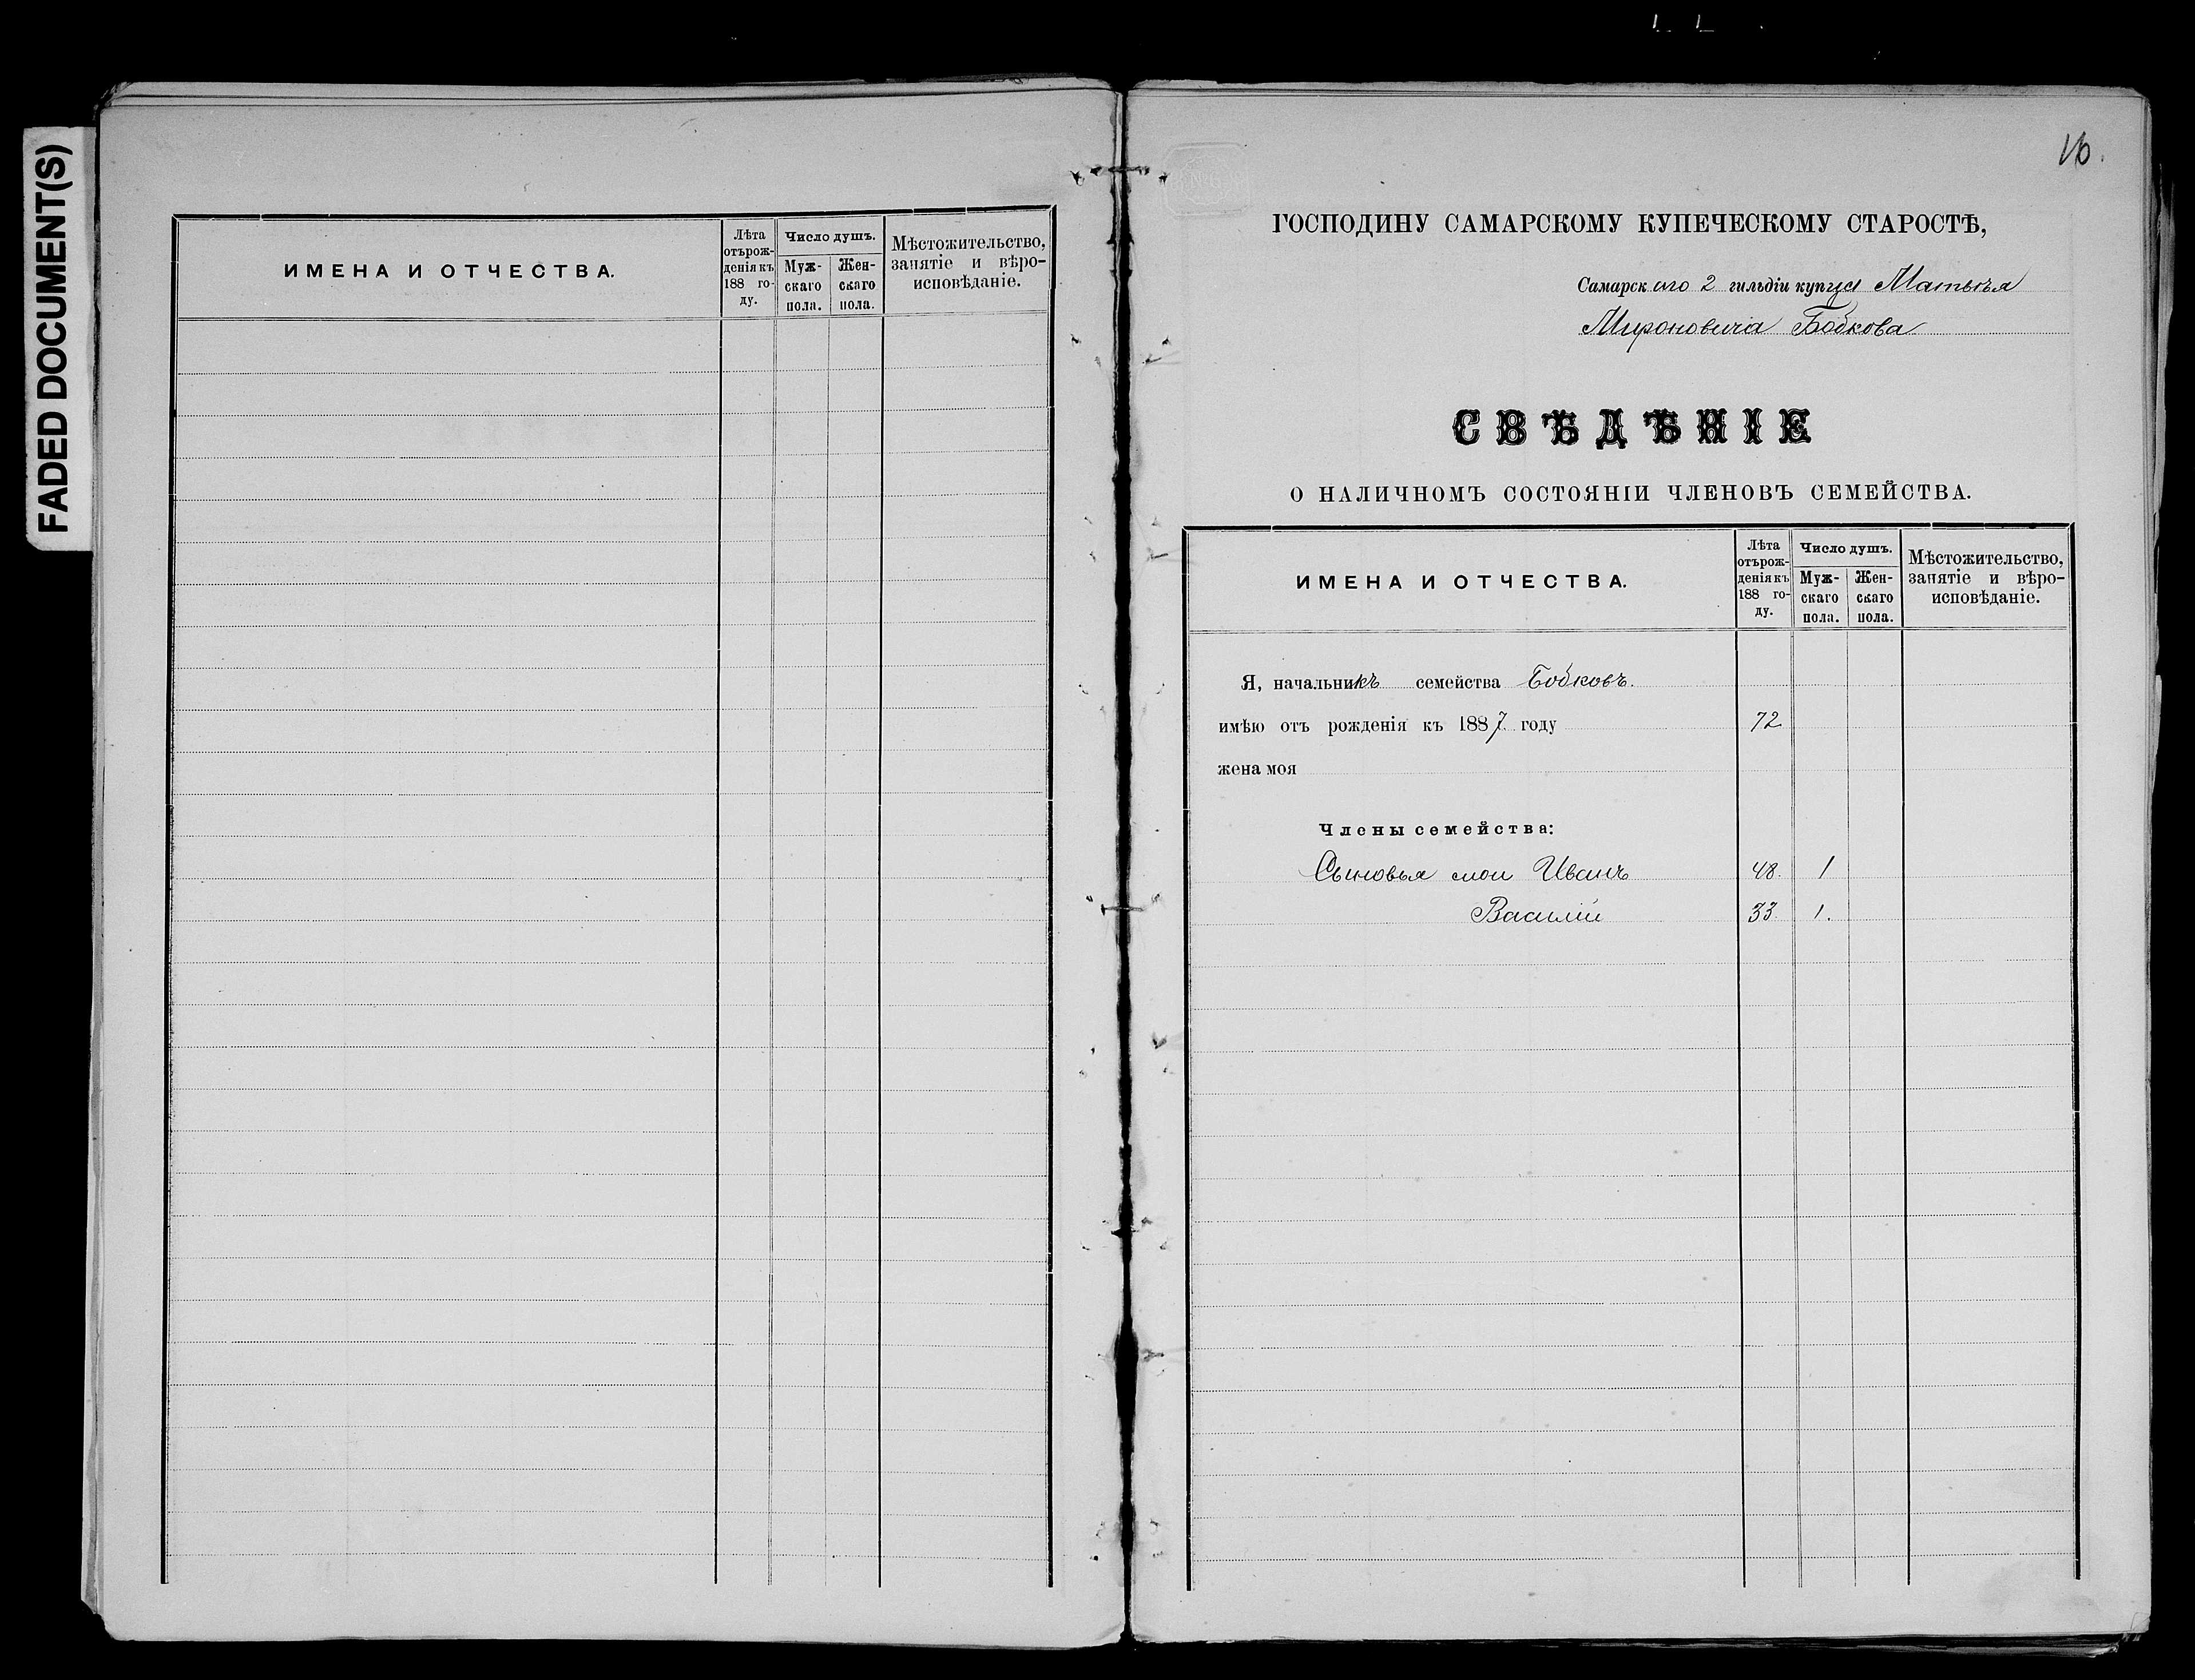 FADED DOCUMENT(S)
ИМЕНА И ОТЧЕСТВА.
Лѣта
отъ рож-
денія къ
188 го-
ду.
Число душъ.
Муж-
скаго
пола.
Жен-
скаго
пола.
Мѣстожительство,
занятіе и вѣро-
исповѣданіе.
16.
ГОСПОДИНУ САМАРСКОМУ КУПЕЧЕСКОМУ СТАРОСТѢ,
Самарскаго 2 гильдіи купца Матвѣя
Мироновича Бобкова
СВѢДѢНІЕ
О НАЛИЧНОМЪ СОСТОЯНІИ ЧЛЕНОВЪ СЕМЕЙСТВА.
ИМЕНА И ОТЧЕСТВА.
Лѣта
отъ рож-
денія къ
188 го-
ду.
Число душъ.
Муж-
скаго
пола.
Жен-
скаго
пола.
Мѣстожительство,
занятіе и вѣро-
исповѣданіе.
Я, начальникъ семейства Бобковъ.
имѣю отъ рожденія къ 1887 году 72
жена моя
Члены семейства:
Сыновья мои Иванъ 48. 1
Василій 33. 1.